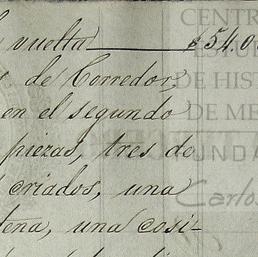 vuelta $54.0
de Corredor,
en el segundo
piezas, tres de
criados, una
una cosi-
CENTR
ESTU
DE HIST
DE ME
UNDA
Carlos